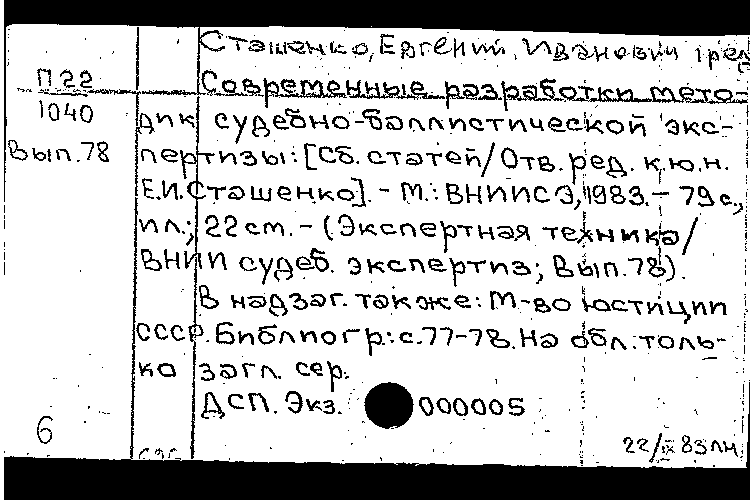 Сташенко, Евгений, Иванович, ред
П22 Современные разработки мето-
1040 дик судебно-баллистической экс-
Вып.78 пертизы: [Сб. статей/Отв. ред. к.ю.н.
Е.И.Сташенко]. - М.: ВНИИСЭ, 1983. - 79 с.,
ил.; 22 см. - (Экспертная техника/
ВНИИ судеб. экспертиз; Вып.78).
В надзаг. также: М-во юстиции
СССР. Библиогр.: с.77-78. На обл. толь-
ко загл. сер.
ДСП. Экз. 000005
6
22/IX 83